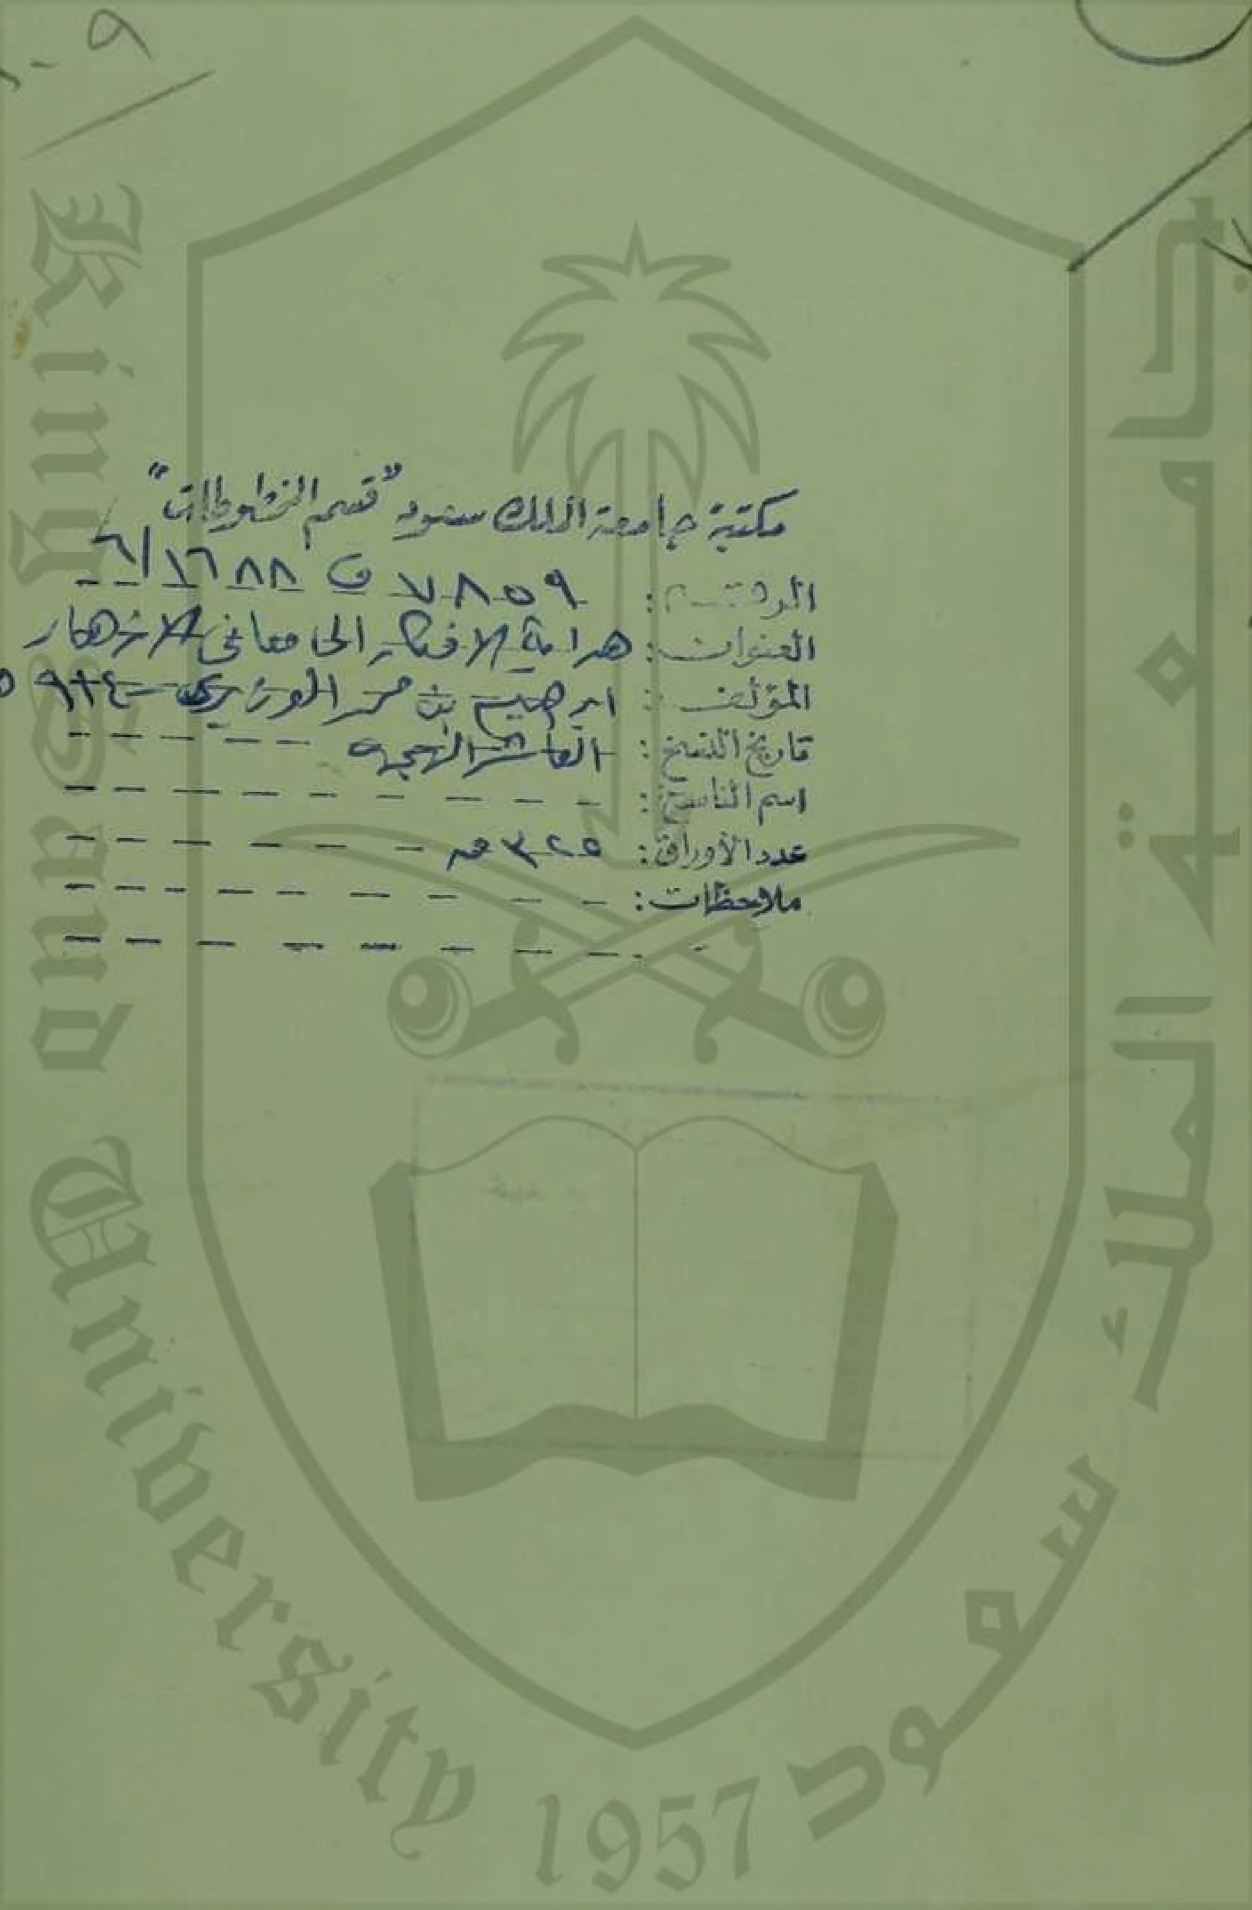 مكتبة جامعة الملك سعود "قسم المخطوطات"
الرقم: ٧٨٥٩ ف ١٦٨٨/٦
العنوان: هداية الافكار الى معاني الازهار
المؤلف: ابراهيم بن محمد الوزيري
تاريخ النسخ: العاشر الهجري
اسم الناسخ:
عدد الأوراق: ٣٢٥
ملاحظات:
King Saud University 1957
جامعة الملك سعود